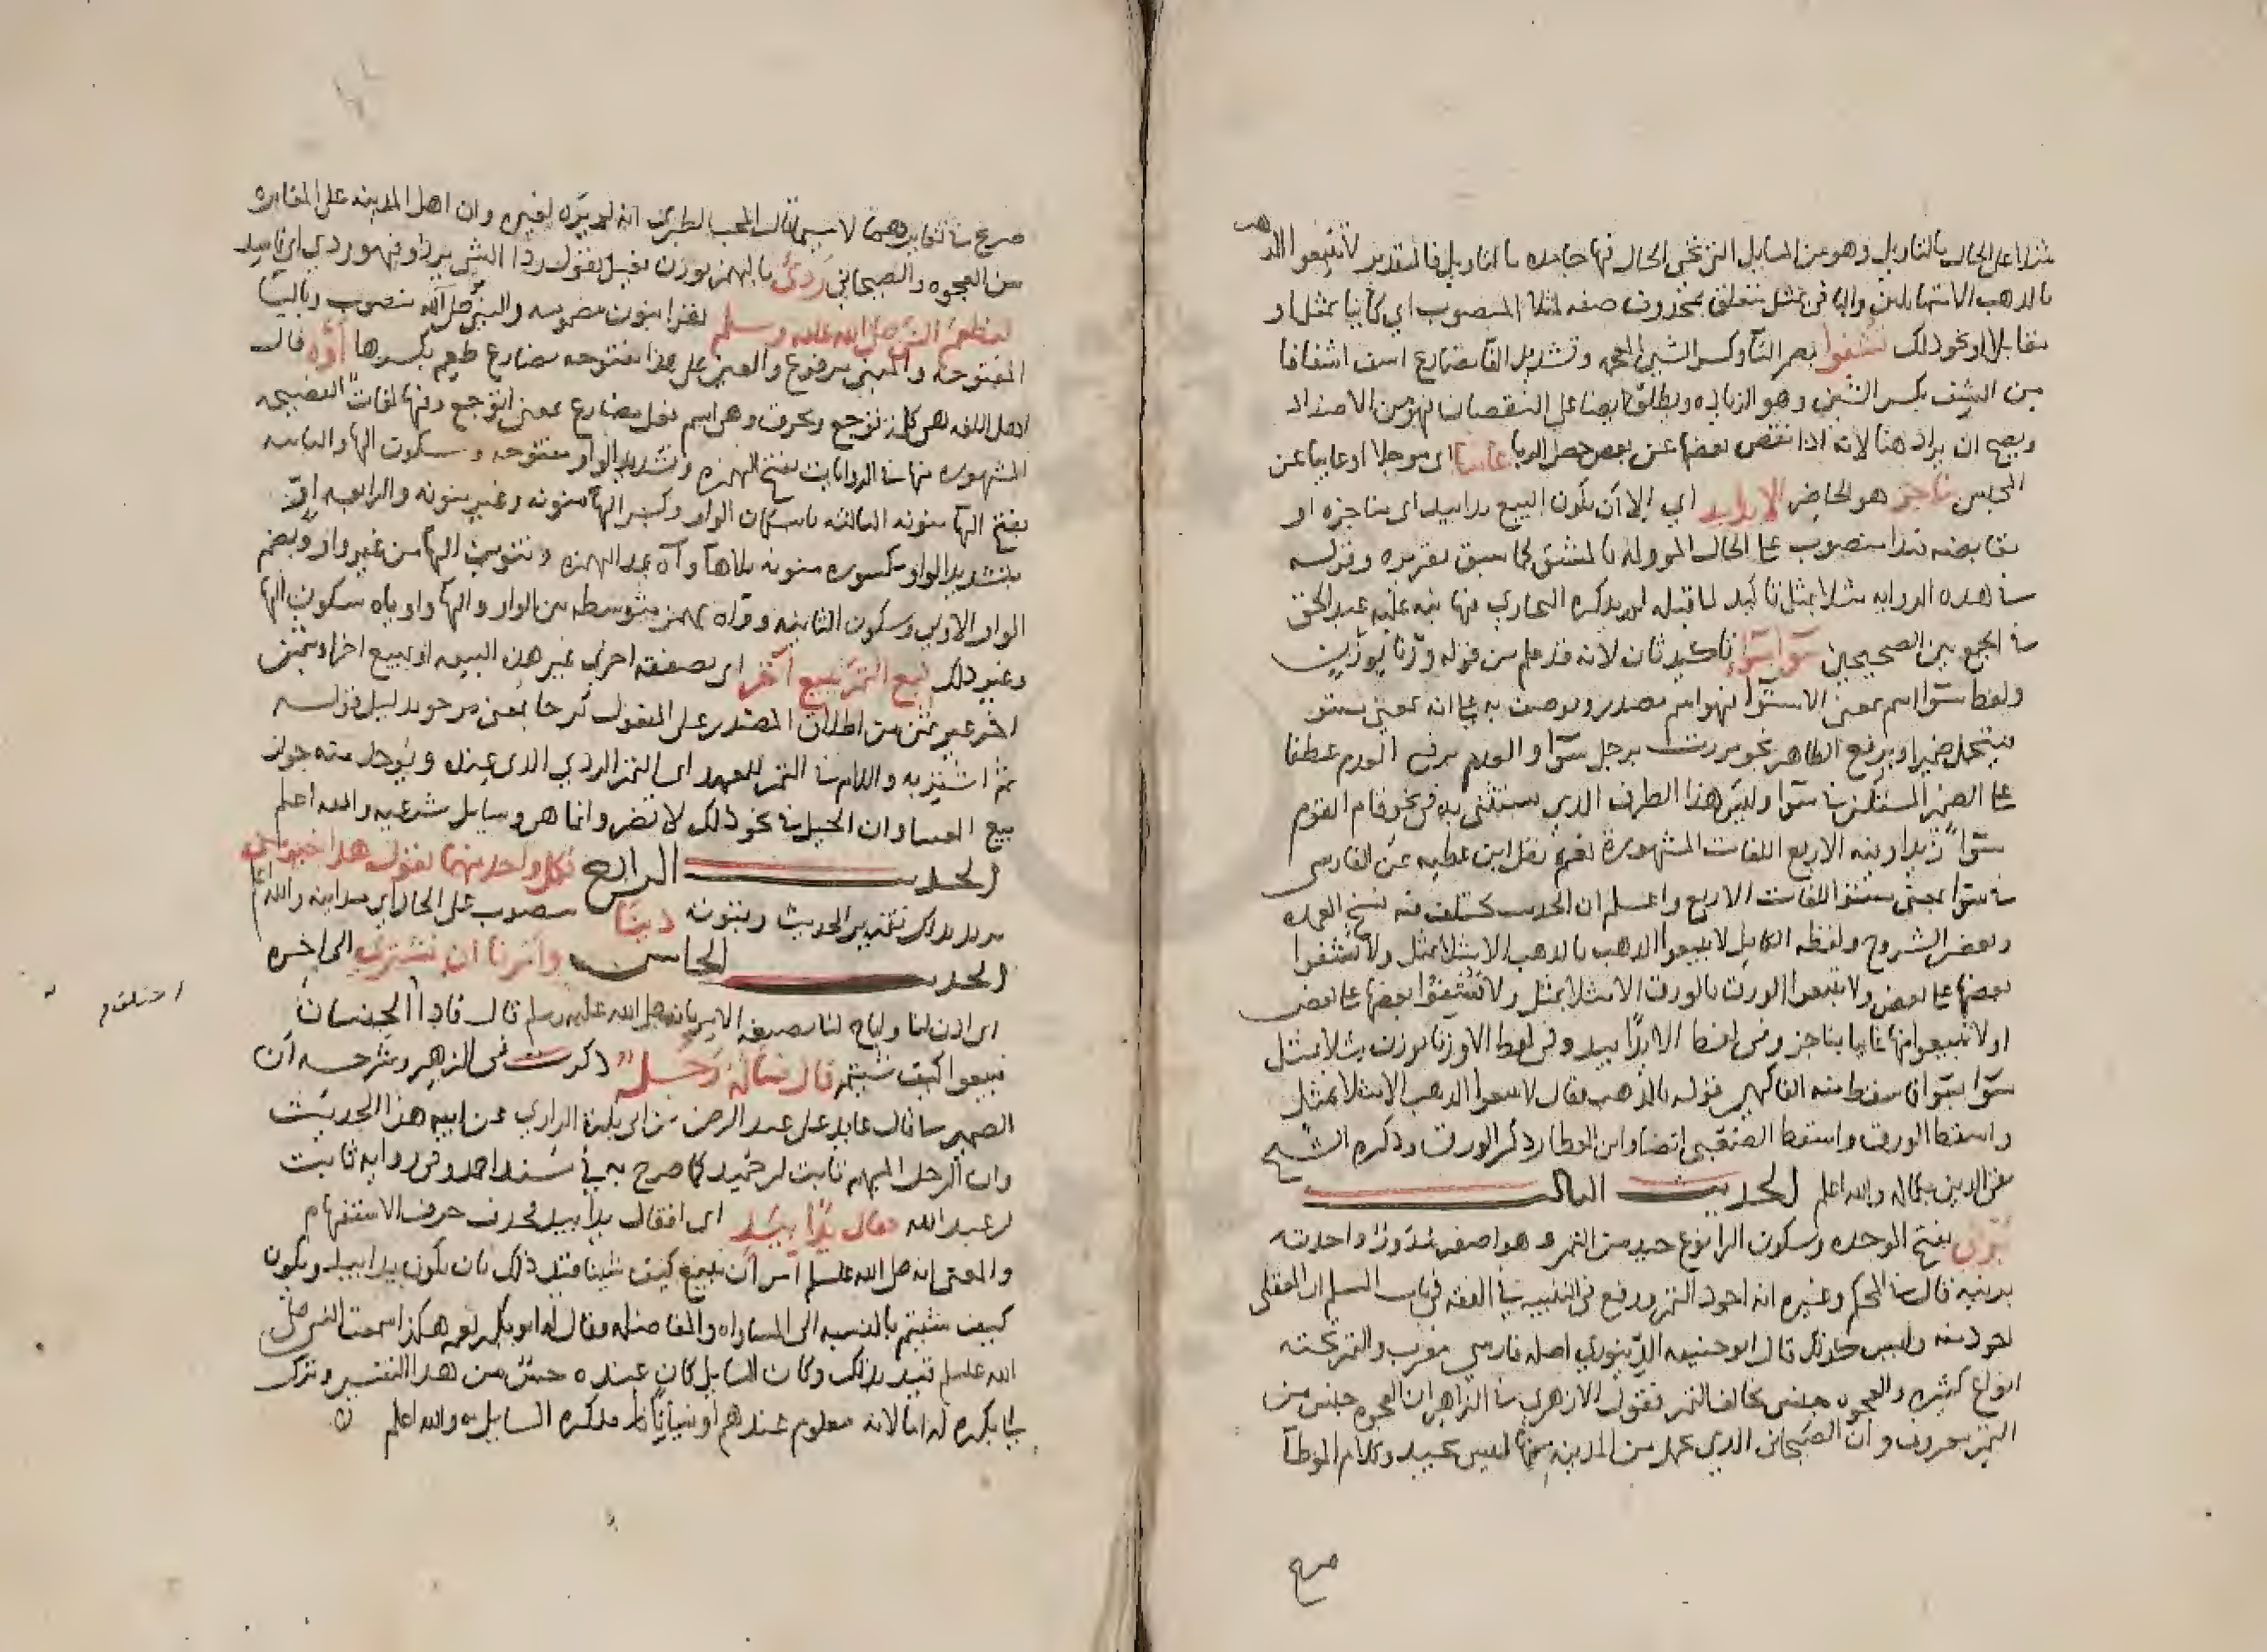 مثلا على الحال بالتاويل وهو من المسايل التى تجى الحال فيها جامده بالتاويل فالتقدير لا تبيعوا الذهب
بالذهب الا متماثلين والبا فى بمثل تتعلق بمحذوف صفه لمثلا المنصوب اي كاينا بمثل او
مقابلا او نحو ذلك تشفوا بضم التآ وكسر الشين المعجمه وتشديد الفآ مضارع اشف اشفافا
من الشف بكسر الشين وهو الزياده ويطلق ايضا على النقصان فهو من الاضداد
ويصح ان يراد هنا لانه اذا نقص بعضها عن بعض حصل الربا غايبا اى موجلا او غايبا عن
المجلس بناجز هو الحاضر الا يدا بيد اي الا ان يكون البيع يدا بيد اى مناجزه او
مقابضه فيدا منصوب على الحال المووله بالمشتق كما سبق تقريره وقوله
فى هذه الروايه مثلا بمثل تاكيد لما قبله لم يذكره البخاري فيها نبه عليه عبد الحق
فى الجمع بين الصحيحين سوآ بسوآ تاكيد ثان لانه قد علم من قوله وزنا بوزن
ولفظ سوآ اسم بمعنى الاستوآ فهو اسم مصدر ويوصف به على انه بمعنى مستو
فيتحمل ضميرا ويرفع الظاهر نحو مررت برجل سوآ والعدم برفع العدم عطفا
على الضمير المستكن فى سوآ وليس هذا الظرف الذي يستثنى به فى نحو قام القوم
سوآ زيد او فيه الاربع اللغات المشهورة نعم نقل ابن عطيه عن الفارسى
فى سوآ بمعنى مستو اللغات الاربع واعلم ان الحديث يختلف فيه نسخ العمده
وبعض الشروح ولفظه الكامل لا تبيعوا الذهب بالذهب الا مثلا بمثل ولا تشفوا
بعضها على بعض ولا تبيعوا الورق بالورق الا مثلا بمثل ولا تشفوا بعضها على بعض
ولا تبيعوا منها غايبا بناجز وفى لفظ الا يدًا بيد وفى لفظ الا وزنا بوزن مثلا بمثل
سوآ بسوآ فاسقط منه الفاكهي قوله بالذهب فقال لا تبيعوا الذهب الا مثلا بمثل
واسقط الورق واسقط الصعبى ايضا وابن العطار ذكر الورق وذكره الشيخ
تقى الدين بكماله والله اعلم الحديث الثالث
برنى بفتح الموحده وسكون الرا نوع جيد من التمر وهو اصفر مدوّر واحدته
برنيه قال فى المحكم وغيره انه اجود التمر ووقع فى التنبيه فى الفقه فى باب السلم ان المعقلى
اجود منه وليس كذلك قال ابو حنيفه الدينورى اصله فارسى معرب والتمر تحته
انواع كثيره والعجوه جنس يخالف التمر فقول الازهرى فى الزاهر ان العجوه جنس من
التمر معروف وان الصيحانى الذى يحمل من المدينه منها ليس بجيد وكلام الموطا
صريح
صريح فى تغايرهما لا سيما قال المحب الطبرى انه لم يره لغيره وان اهل المدينه على المغايره
من العجوه والصيحانى رَدِئ بالهمز بوزن فعيل يقول ردا الشى يردا فهو ردى اى فاسد
لنطعم النبى صلى الله عليه وسلم يقرا بنون مضمومه والنبى صلى الله منصوب وباليا
المفتوحه والنبى مرفوع والعين على هذا مفتوحه مضارع طعم بكسرها أوّه قال
اهل اللغه هى كلمة توجع وتحزن وهى اسم فعل مضارع بمعنى اتوجع وفيها لغات الفصيحه
المشهوره منها فى الروايات بفتح الهمزه وتشديد الواو مفتوحه وسكون الها والثانيه
بفتح الها منونه الثالثه باسكان الواو وكسر الها منونه وغير منونه والرابعه اوّ
بتشديد الواو مكسوره منونه بلا هآ وآه بمد الهمزه وتنوين الهآ من غير واو وبضم
الواو الاولى وسكون الثانيه وواه بهمز متوسطه بين الواو والهآ واوياه بسكون الها
وغير ذلك فبع التمر ببيع آخر اى بصفقه اخرى غير هذه البيعه او ببيع اخر اى بثمن
اخر غير ثمن من اطلاق المصدر على المفعول بدليل قوله
ثم اشتر به واللام فى التمر للعهد اى التمر الردي الذى عنده ويوخذ منه جواز
بيع العينه وان الحيل فى نحو ذلك لا تضر وانما هى وسايل شرعيه والله اعلم
الحديث الرابع فكل واحد منهما يقول هذا خير منى
يريد بذلك تقدير الحديث وبنونه دينا منصوب على الحال اى مداينه والله اعلم
الحديث الخامس وامرنا ان نشترى الى اخره
اى اذن لنا واباح لنا بصيغه الامر بانه صلى الله عليه وسلم قال فاذا اختلفتم الجنسان
فبيعوا كيف شيتم قال فساله رجل ذكرت فى الزهر وشرحه ان
الضمير فى قال عايد على عبد الرحمن بن ابى بكرة الراوى عن ابيه هذا الحديث
وان الرجل المبهم ثابت بن عبيد كما صرح به فى مسند احمد وفى روايه ثابت
بن عبد الله فقال يدًا بيدٍ اى افقال يدا بيد فحذف حرف الاستفهام
والمعنى انه صلى الله عليه وسلم امر ان نبيع كيف شينا فقيد ذلك بان يكون يدا بيد ويكون
كيف شيتم بالنسبه الى المساواه والمفاضله وقال له ابو بكره نعم هكذا سمعت النبى صلى
الله عليه وسلم قيد بذلك وكان السايل كان عنده من هذا التقييد وترك
ابا بكره له اما لانه معلوم عندهم او نسيانا فذكره السايل به والله اعلم
اختلفتم